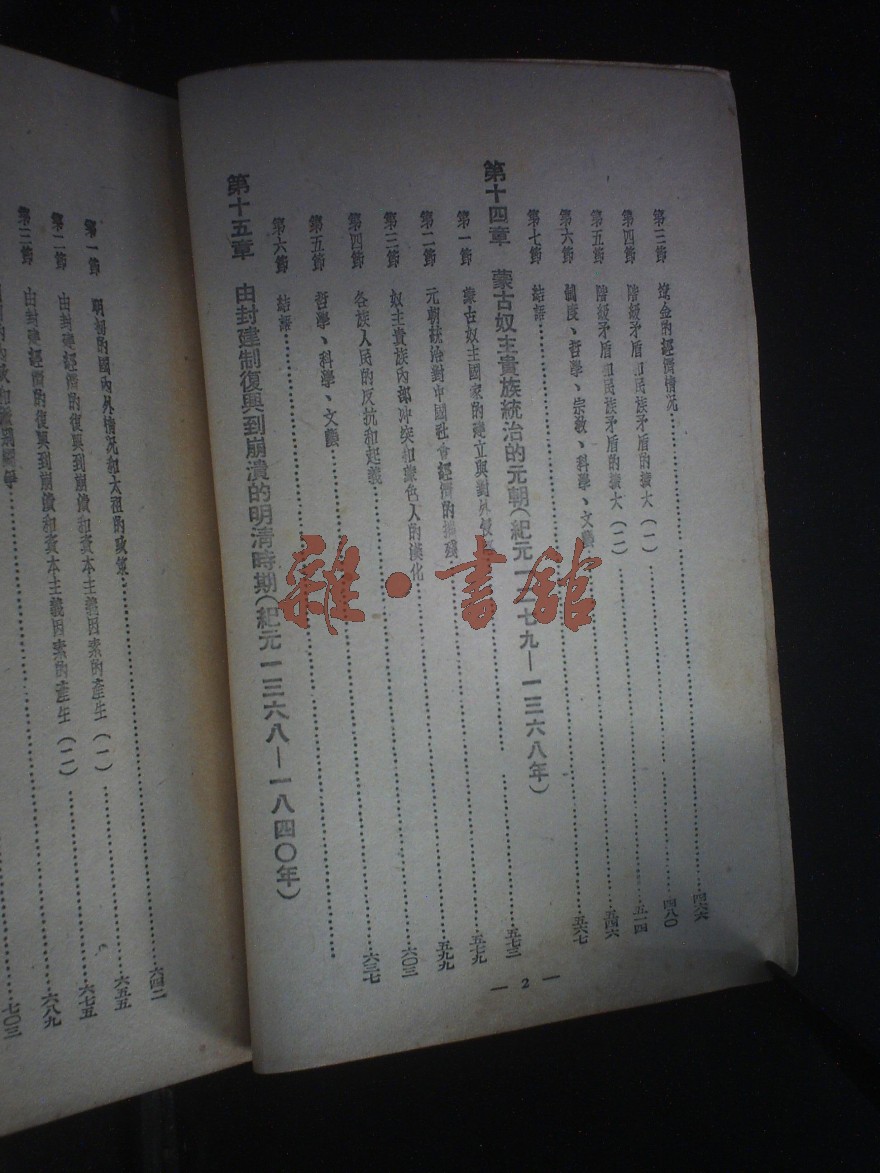 第三節 遼金的經濟情况 四六六
第四節 階級矛盾和民族矛盾的擴大(一) 四八〇
第五節 階級矛盾和民族矛盾的擴大(二) 五一四
第六節 制度、哲學、宗敎、科學、文藝
第七節 結語 五六七
第十四章 蒙古奴主貴族統治的元朝(紀元一二七九—一三六八年)
第一節 蒙古奴主國家的建立與對外侵 五七三
第二節 元朝統治對中國社會經濟的摧殘 五七九
第三節 奴主貴族內部冲突和蒙色人的漢化 五九九
第四節 各族人民的反抗和起義 六〇三
第五節 哲學、科學、文藝
第六節 結語
第十五章 由封建制復興到崩潰的明清時期(紀元一三六八—一八四〇年)
— 2 —
第一節 明初的國內外情况和太祖的政策 六四二
第二節 由封建經濟的復興到崩潰和資本主義因素的產生(一) 六五五
由封建經濟的復興到崩潰和資本主義因素的產生(二) 六七五
第三節
六八九
七〇三
雜·書舘